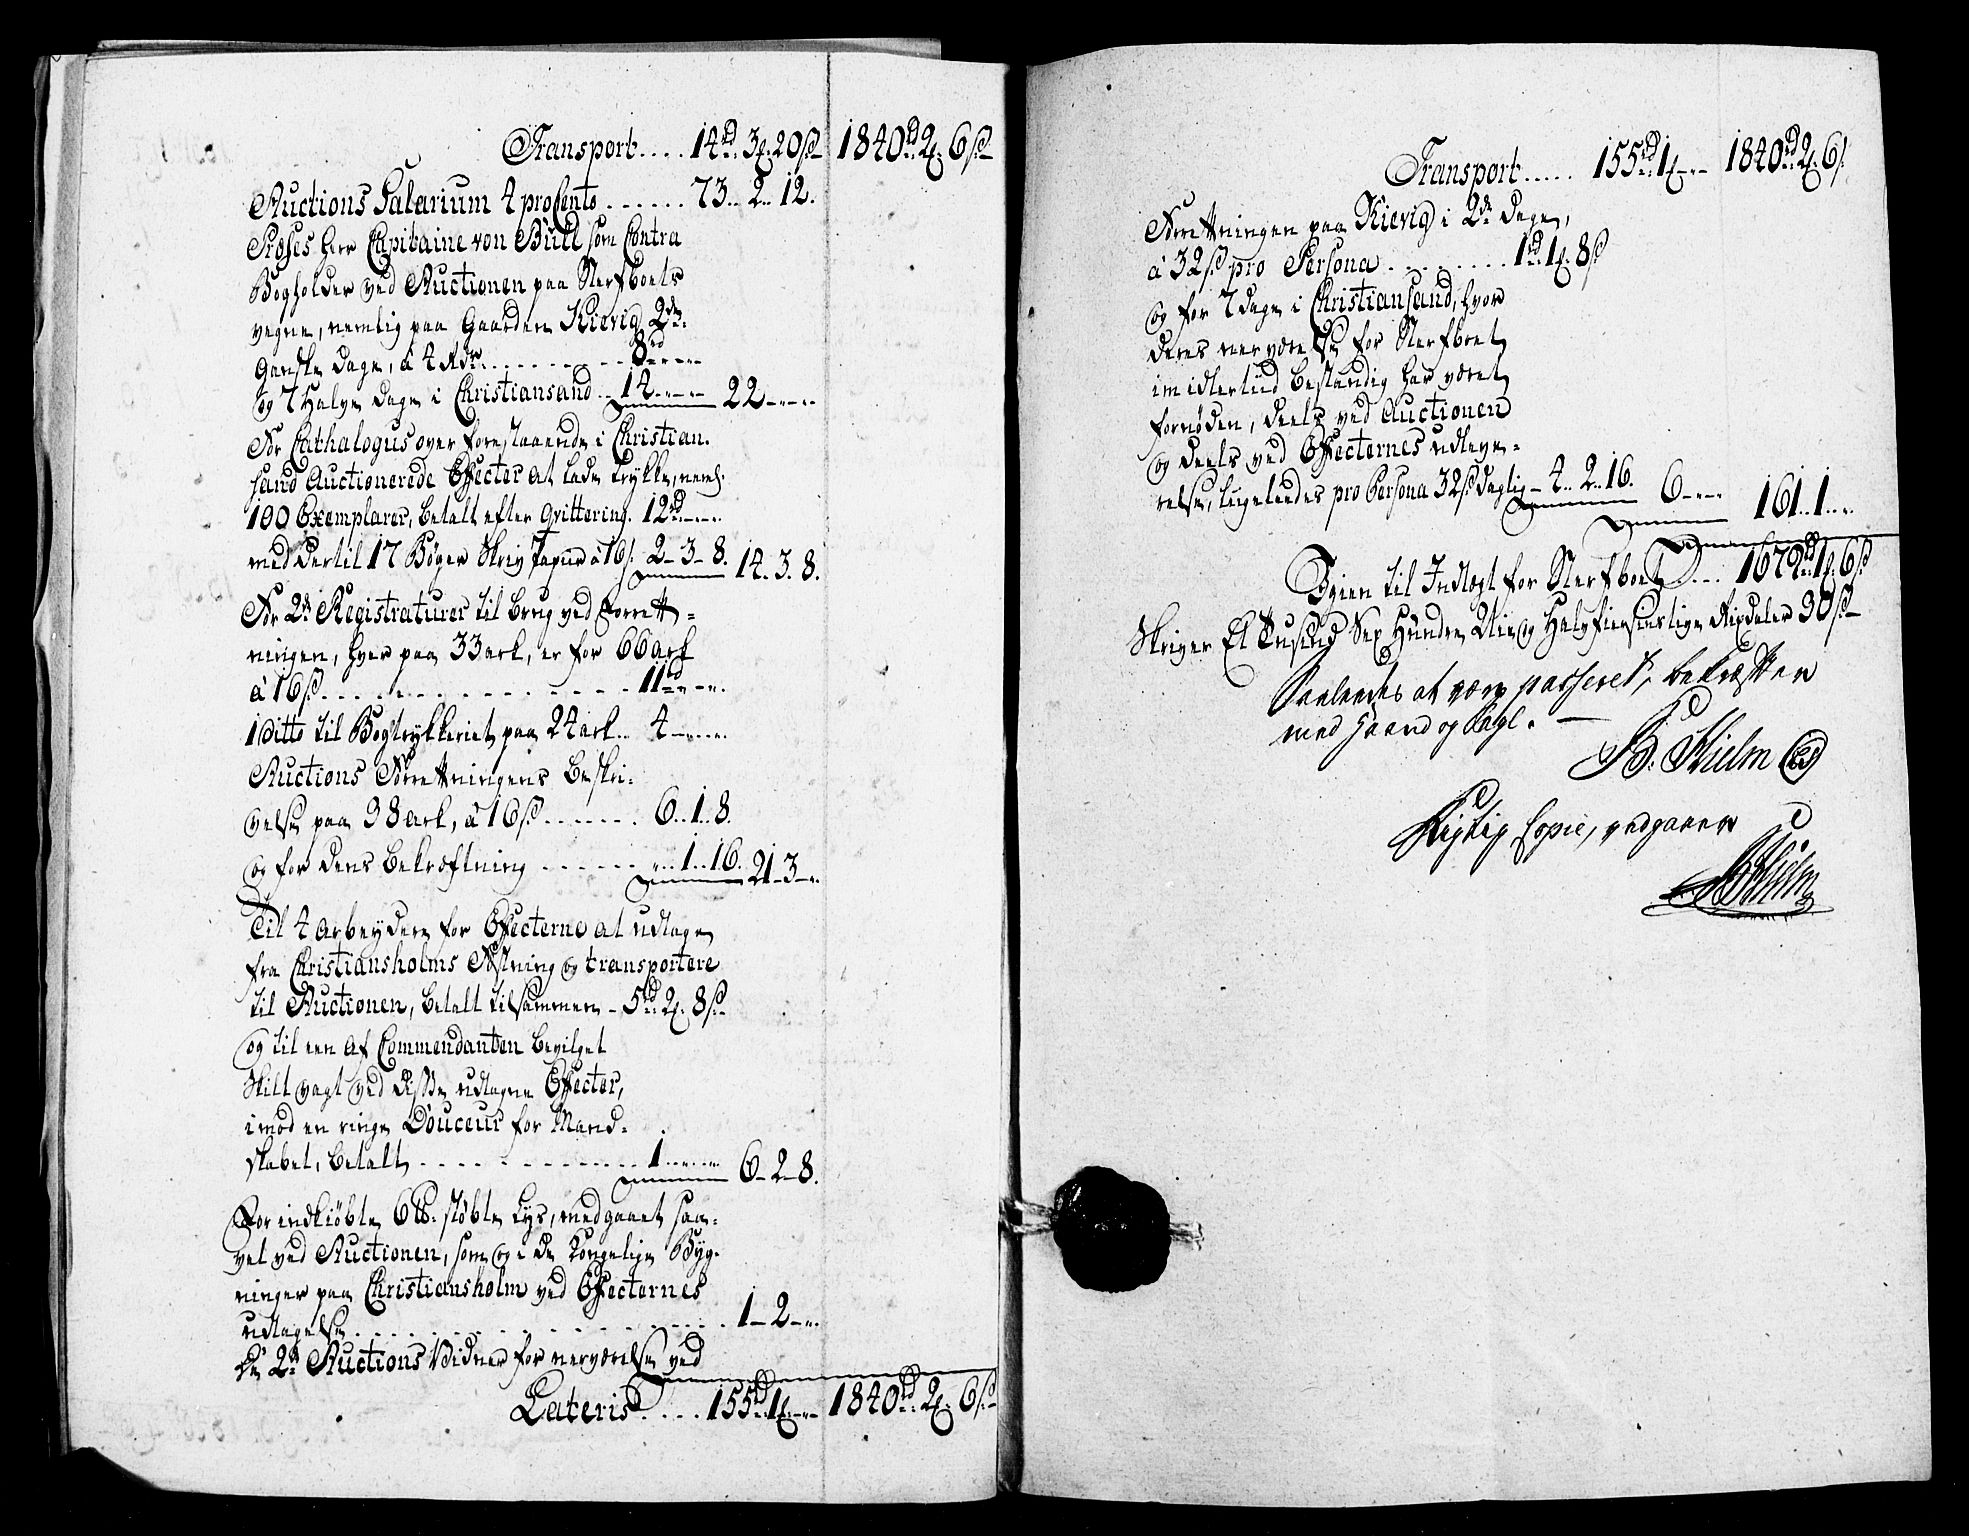 Transport.... 14rd 3f. 20ß 1840rd 2f. 6ß
Auctions Salarium 4 proCento ...... 73.. 2.. 12.
Roses Herr Capitaine von Büll som Contra
Bogholder ved Auctionen paa Sterfboets
vegne, nemlig paa Gaarden Kievig 2de
Gandske Dage, à 4 Rdr. ........ 8rd
og 7 Halve Dage i Christiansand .. 14 -..- 22 -..-
For Cathalogus over forestaaende i Christian-
sand Auctionerede Effecter at lade trykke, neml.
100 Exemplarer, betalt efter Qvittering. 12rd
med Dertil 17 Bøger Skriv Papiir à 16ß. 2-3-8. 14. 3. 8.
For 2de Registraturer til brug ved Forrett-
ningen, hver paa 33 ark, er for 66 ark
à 16ß. ................ 11rd
1 ditto til Bogtrykkeriet paa 24 ark.. 4
Auctions Forretningens beskri-
velse paa 38 ark, à 16ß ....... 6.. 1.. 8.
og for dens bekræftning ....... "..1..16. 21-3-".
Til 4 Arbeydere for Effecterne at udtage
fra Christiansholms Fæstning og transportere
til Auctionen, betalt tilsammen - 5rd 2f. 8ß
og til een af Commendanten bevilget
Skilt vagt ved disse udtagne Effecter,
imod en ringe Douceur for Mand-
skabet, betalt ............. 1 6-2-8.
For indkiøbte 6 ℔. støbte Lys, medgaaet saa-
vel ved Auctionen, som og i de Kongelige Byg-
ninger paa Christiansholm ved Effecternes
udtagelse .................. 1-2-".
De 2de Auctions Vidner for nærværelse ved
Lateris .... 155rd 1f. 1840rd 2f. 6ß
Transport..... 155rd 1f. 1840rd 2f. 6ß
Forretningen paa Kievig i 2de Dage,
à 32ß pro Persona ......... 1rd 1f. 8ß
og for 7 Dage i Christiansand, hvor
deres nærværelse for Sterfboet
imidlertiid bestandig har været
fornøden, deels ved Auctionen
og deels ved Effecternes udleve-
relse, ligeledes pro Persona 32ß daglig - 4.. 2.. 16. 6 161..1..
Igien til Indtægt for Sterfboet ... 1679rd 1f. 6ß
Skriver Et Tusind Sex Hundre Nie og Halvfierdsindstive Rixdaler 30ß
Saaledes at være passeret, bekræfter
med Haand og Segl. —
B: Hielm
Rigtig Copie, vedgaaer
B Hielm